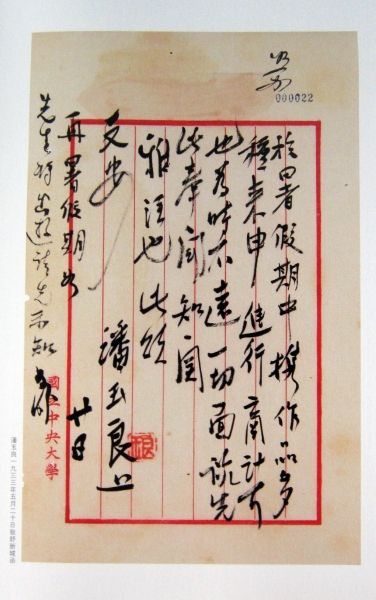 000022
於暑假期中携作品多
種来申進行商計
也為時不遠一切面談先
此奉聞知関
雅注也此頌
文安
潘玉良上
廿日
再暑假期如
先生將出遊請先示知
國立中央大學
潘玉良一九三三年五月二十日致舒新城函